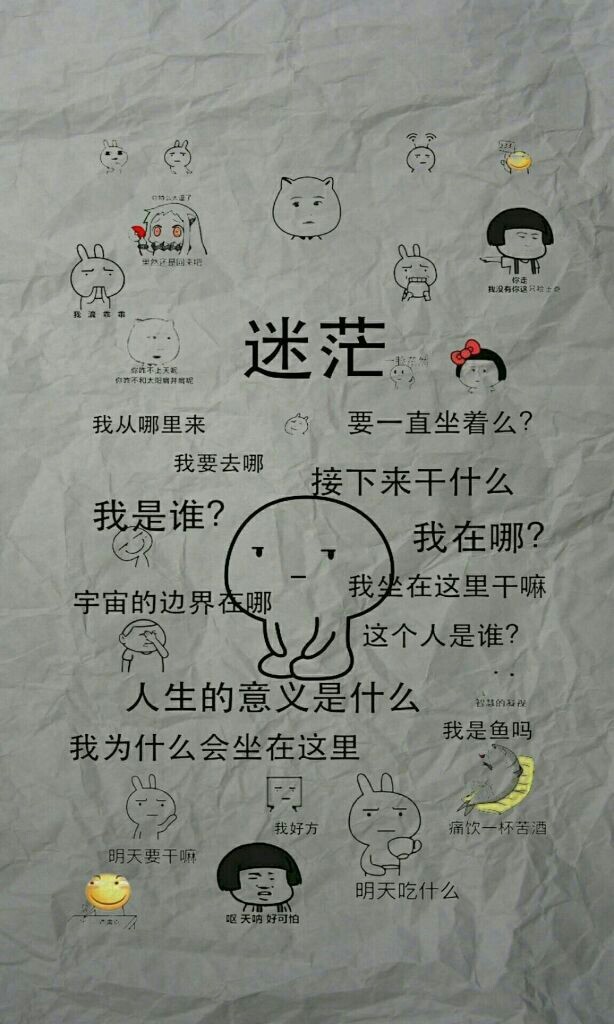 果然还是回来吧
你走
我没有你这只哈士奇
我滴乖乖
迷茫
一脸茫然
你咋不上天呢
你咋不和太阳肩并肩呢
我从哪里来
要一直坐着么？
我要去哪
接下来干什么
我是谁？
我在哪？
我坐在这里干嘛
宇宙的边界在哪
这个人是谁？
人生的意义是什么
智慧的凝视
我是鱼吗
我为什么会坐在这里
我好方
痛饮一杯苦酒
明天要干嘛
明天吃什么
呕 天呐 好可怕